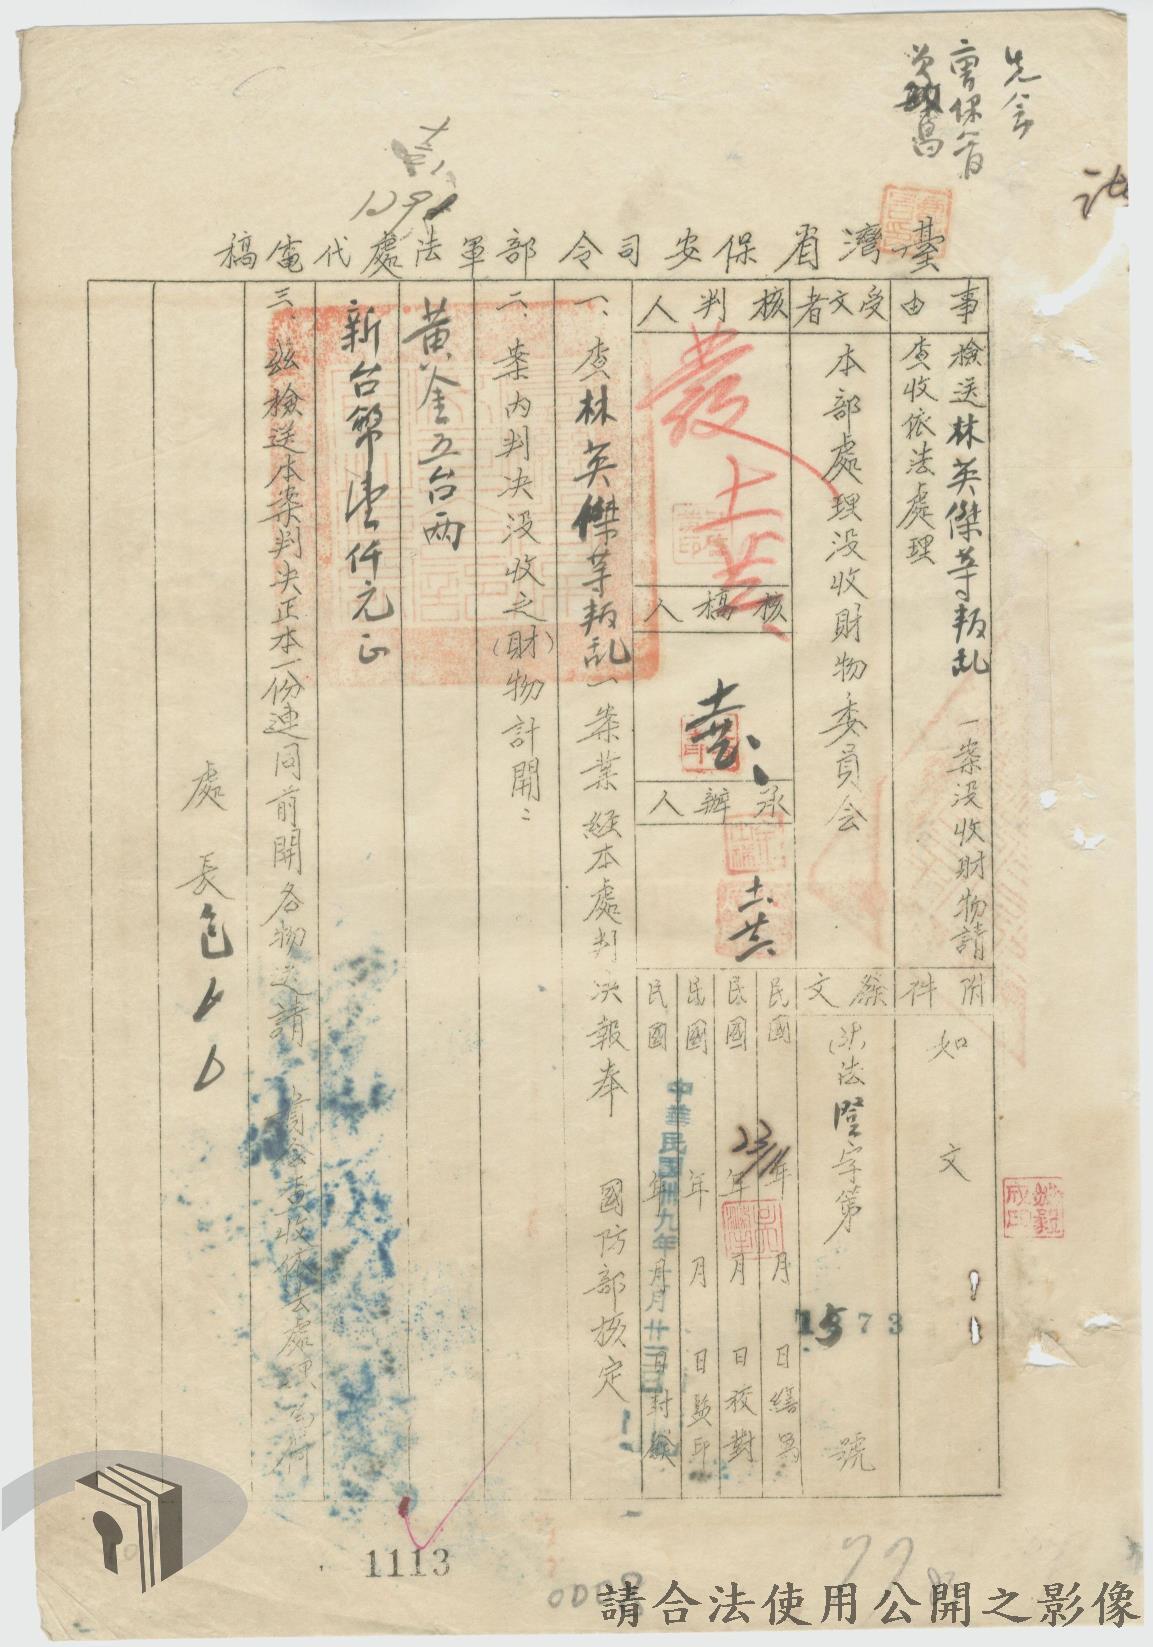 先會
曾保含
臺灣省保安司令部軍法處代電稿
事由
檢送林英傑等叛乱一案没收財物請
查收依法處理
附件
如文
受文者
本部處理没收財物委員会
發文
法字第
1573
號
核判人
發
核稿人
承辦人
民國 年 月 日繕寫
民國 年 月 日校對
民國 年 月 日監印
民國 年 月 日封發
中華民國卅九年
一、查林英傑等叛乱一案業經本處判决報奉 國防部核定
二、案内判决没收之(財)物計開:
黄金五台两
新台幣壹仟元正
三、兹檢送本案判决正本一份連同前開各物送請 貴会查收依法處理為荷
處長包
1113
請合法使用公開之影像